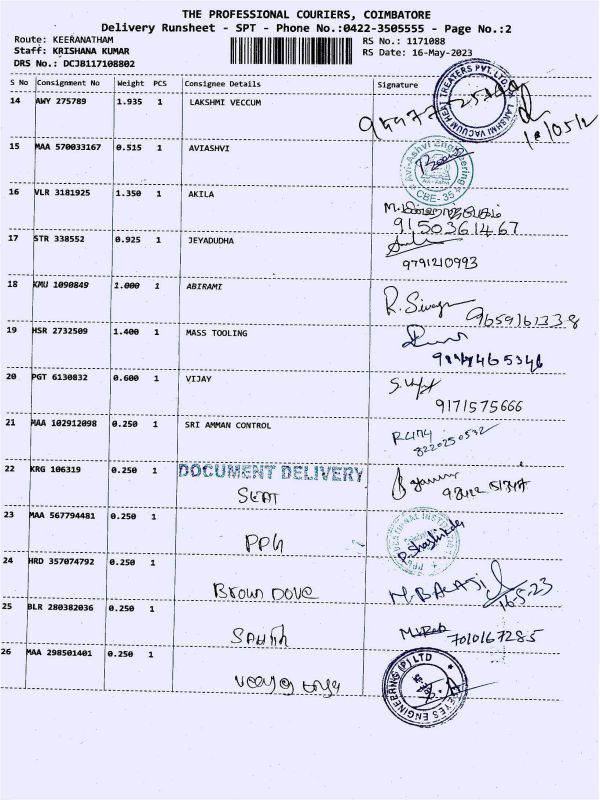 THE PROFESSIONAL COURIERS, COIMBATORE
Delivery Runsheet - SPT - Phone No.:0422-3505555 - Page No.:2
Route: KEERANATHAM RS No.: 1171088
Staff: KRISHANA KUMAR RS Date: 16-May-2023
DRS No.: DCJB117108802
S No Consignment No Weight PCS Consignee Details Signature
14 AWY 275789 1.935 1 LAKSHMI VECCUM
LAKSHMI VACUUM HEAT TREATERS PVT. LTD.
15 MAA 570033167 0.515 1 AVIASHVI
Avi-Ashvi Engineering
CBE-35
16 VLR 3181925 1.350 1 AKILA
9150361467
17 STR 338552 0.925 1 JEYADUDHA
9791210993
18 KMU 1090849 1.000 1 ABIRAMI R. Sivagn
9659161338
19 HSR 2732509 1.400 1 MASS TOOLING
20 PGT 6130832 0.600 1 VIJAY
9171575666
21 MAA 102912098 0.250 1 SRI AMMAN CONTROL
8220250532
22 KRG 106319 0.250 1 DOCUMENT DELIVERY
23 MAA 567794481 0.250 1
PPG
24 HRD 357074792 0.250 1
Brown Dove M. BALAJI 16-5-23
25 BLR 280382036 0.250 1
7010167285
26 MAA 298501401 0.250 1
EYES ENGINEERING (P) LTD